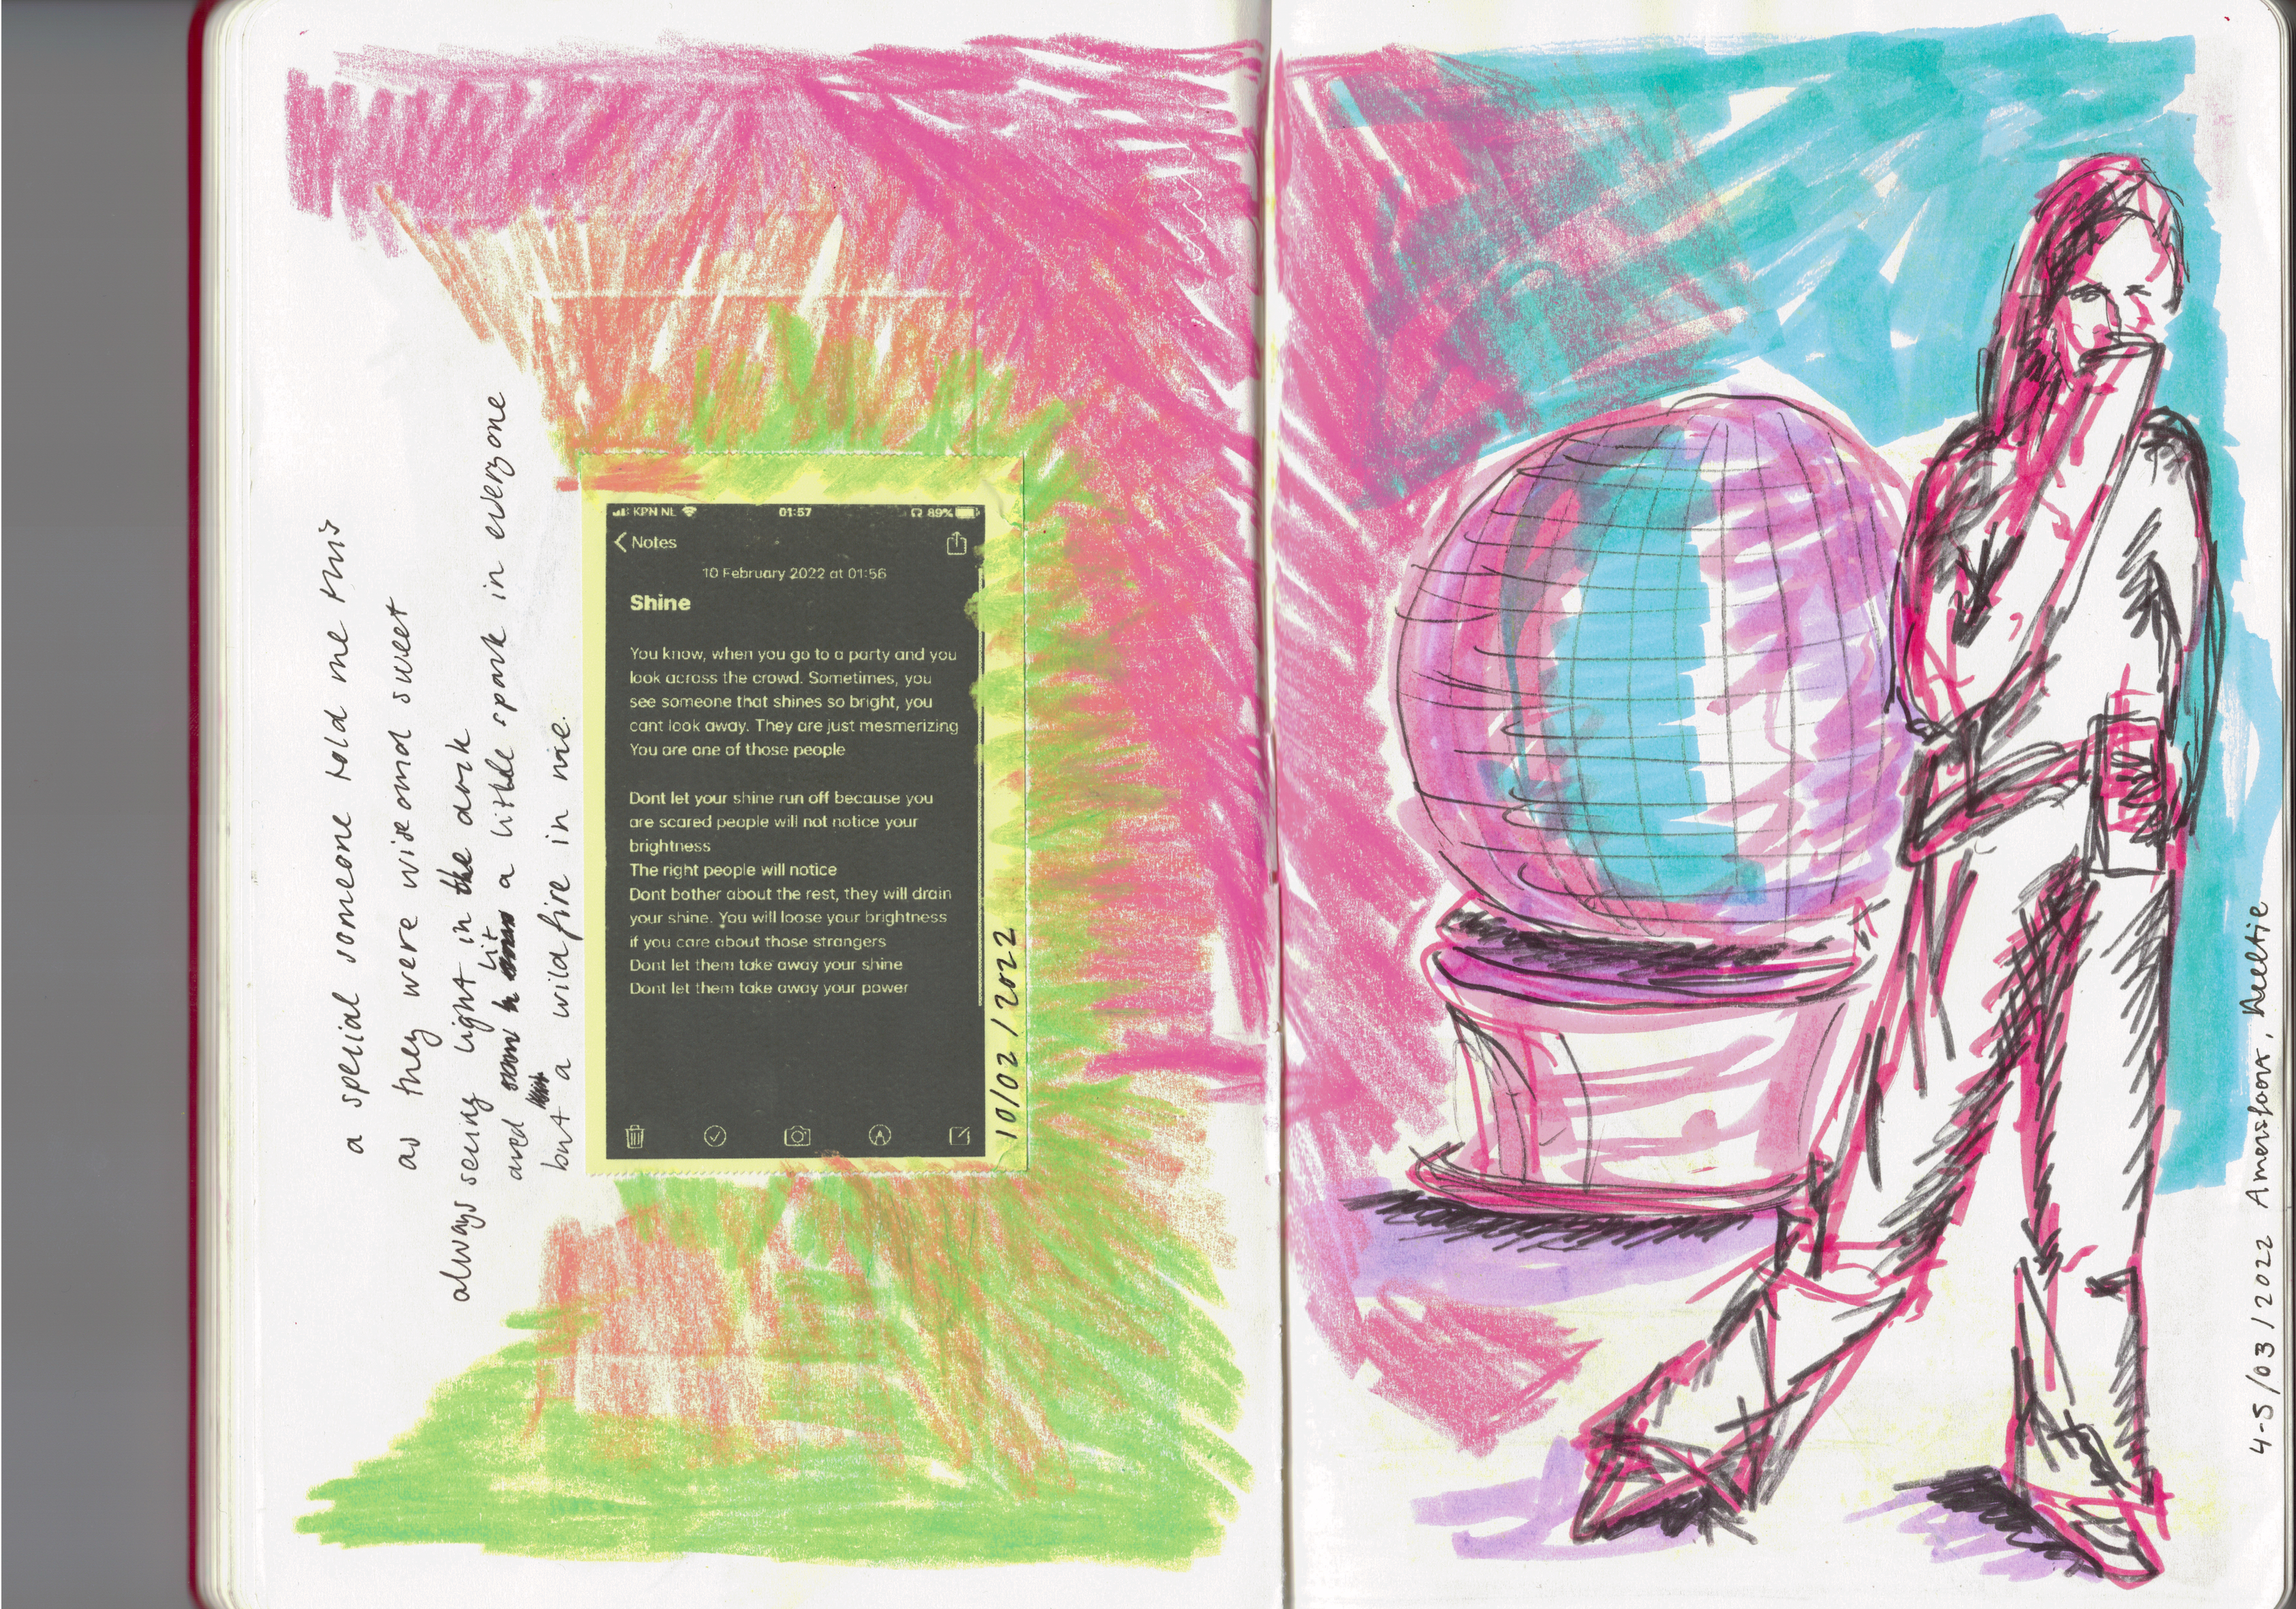 a special someone told me this
as they were wise and sweet
always seeing light in the dark
and lit a little spark in everyone
but a wild fire in me.
KPN NL 01:57 89%
Notes
10 February 2022 at 01:56
Shine
You know, when you go to a party and you
look across the crowd. Sometimes, you
see someone that shines so bright, you
cant look away. They are just mesmerizing
You are one of those people
Dont let your shine run off because you
are scared people will not notice your
brightness
The right people will notice
Dont bother about the rest, they will drain
your shine. You will loose your brightness
if you care about those strangers
Dont let them take away your shine
Dont let them take away your power
10/02/2022
4-5/03/2022 Amersfoort,